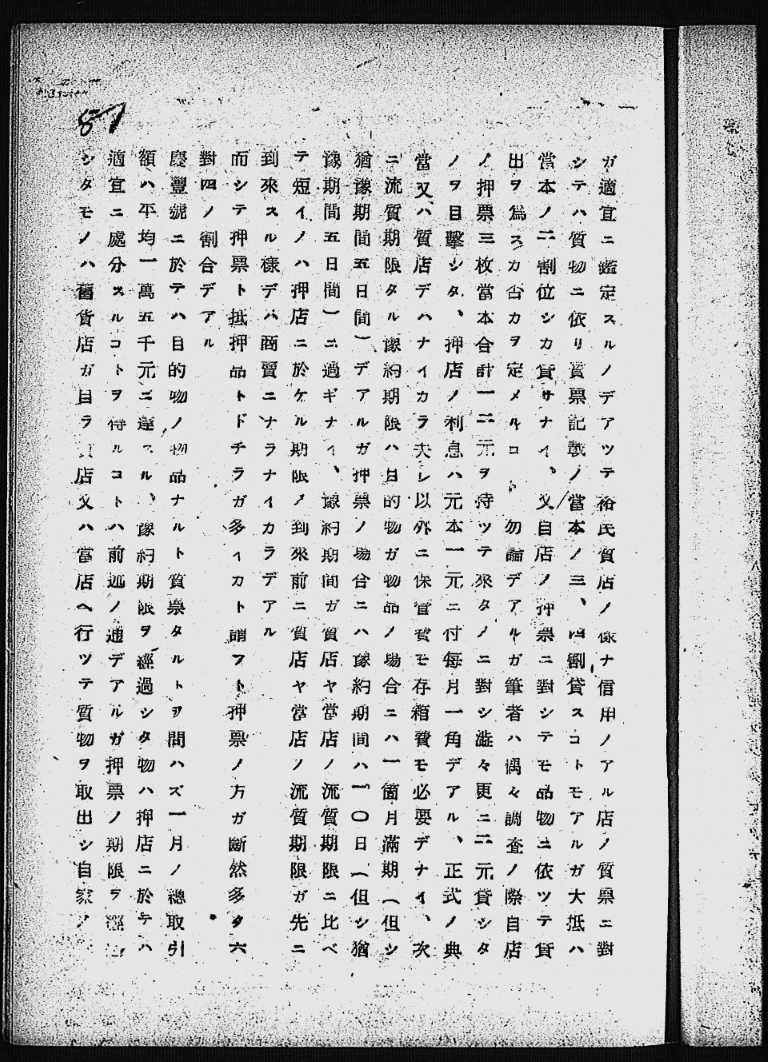 87
ガ適宜ニ鑑定スルノデアツテ裕民質店ノ樣ナ信用ノアル店ノ質票ニ對
シテハ質物ニ依リ質票記載ノ當本ノ三、四割貸スコトモアルガ大抵ハ
當本ノ二割位シカ貸サナイ、又自店ノ押票ニ對シテモ品物ニ依ツテ貸
出ヲ爲スカ否カヲ定メルコト 勿論デアルガ筆者ハ偶々調査ノ際自店
ノ押票三枚當本合計一二元ヲ持ツテ來タノニ對シ澁々更ニ二元貸シタ
ノヲ目擊シタ、押店ノ利息ハ元本一元ニ付每月一角デアル、正式ノ典
當又ハ質店デハナイカラ夫レ以外ニ保管費モ存箱費モ必要デナイ、次
ニ流質期限タル豫約期限ハ目的物ガ物品ノ場合ニハ一箇月滿期（但シ
猶豫期間五日間）デアルガ押票ノ場合ニハ豫約期間ハ一〇日（但シ猶
豫期間五日間）ニ過ギナイ、豫約期間ガ質店ヤ當店ノ流質期限ニ比ベ
テ短イノハ押店ニ於ケル期限ノ到來前ニ質店ヤ當店ノ流質期限ガ先ニ
到來スル樣デハ商賣ニナラナイカラデアル
而シテ押票ト抵押品トドチラガ多イカト謂フト押票ノ方ガ斷然多ク六
對四ノ割合デアル
慶豐號ニ於テハ目的物ノ物品ナルト質票タルトヲ問ハズ一月ノ總取引
額ハ平均一萬五千元ニ達スル、豫約期限ヲ經過シタ物ハ押店ニ於テハ
適宜ニ處分スルコトヲ得ルコトハ前述ノ通デアルガ押票ノ期限ヲ經過
シタモノハ舊貨店ガ自ラ質店又ハ當店ヘ行ツテ質物ヲ取出シ自家ノ